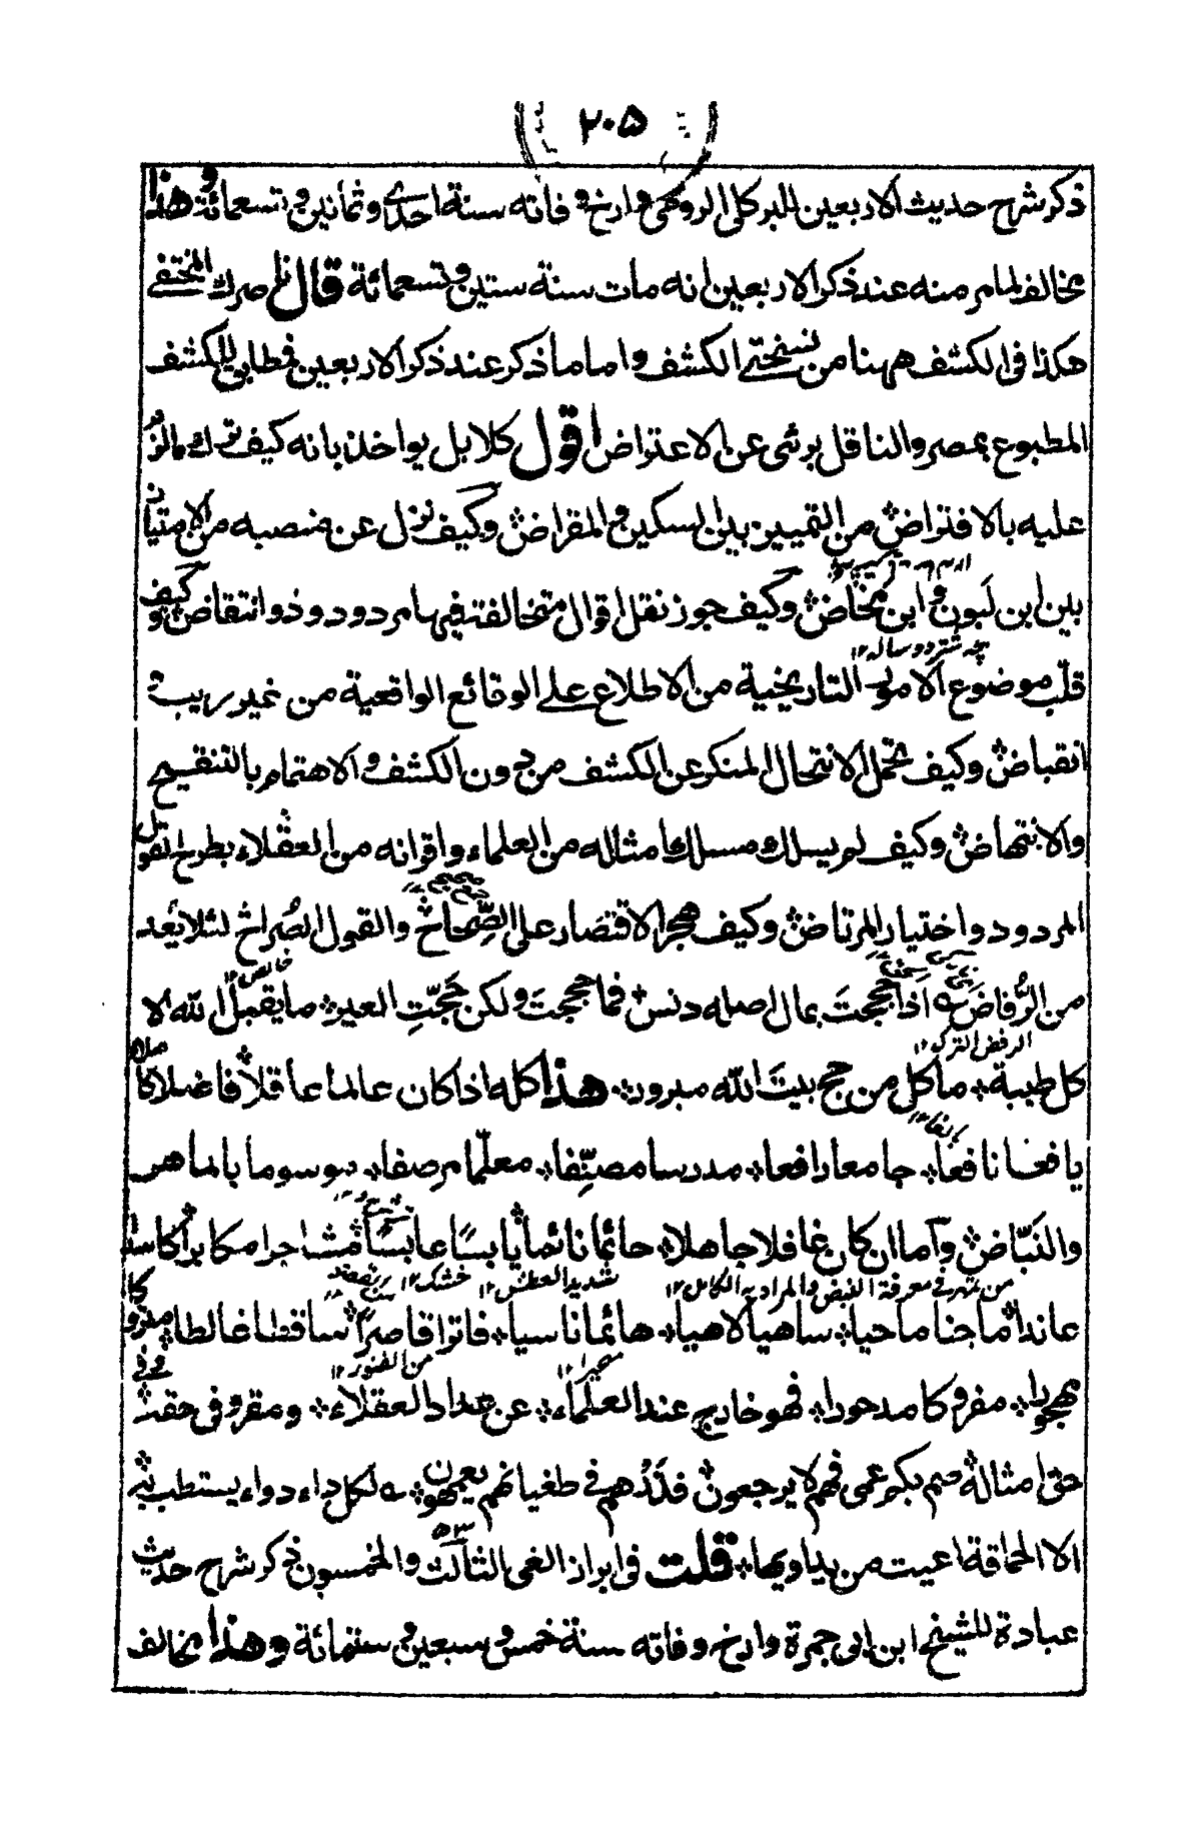 ٢٠٥
ذكر شرح حديث الاربعين للبركلى الرومى وارخ وفاته سنة احدى وثمانين وتسعمائة وهذا
يخالف لما مر منه عند ذكر الاربعين انه مات سنة ستين وتسعمائة قال ناصرك المختفى
هكذا فى الكشف ههنا من نسختى الكشف واما ما ذكر عند ذكر الاربعين فمطابق للكشف
المطبوع بمصر والناقل برئى عن الاعتراض اقول كلا بل يواخذ بانه كيف ترك ما لزم
عليه بالافتراض من التمييز بين السكين والمقراض وكيف نزل عن منصبه من الامتياز
بين ابن لبون وابن مخاض وكيف جوز نقل اقوال متخالفة فيها مردود وذو انتقاض وكيف
بچه شتر دو ساله ١٢
قلب موضوع الامور التاريخية من الاطلاع على الوقائع الواقعية من غير ريبة و
انقباض وكيف تحمل الانتحال المنكر عن الكشف من دون الكشف والاهتمام بالتنقيح
والانتهاض وكيف لم يسلك مسلك امثاله من العلماء واقرانه من العقلاء بطرح القول
المردود واختيار المرتاض وكيف هجر الاقتصار على الصِّحاح والقول الصُراح لئلا يُعد
خالص ١٢
من الرُّفاض ؎ اذا حججتَ بمال اصله دنس فما حججتَ ولكن حَجّتِ العير ما يقبل الله الا
الرفض الترك ١٢
كل طيبة ما كل من حج بيتَ الله مبرور هذا كله اذا كان عالما عاقلا فاضلا كاملا
يافعا نافعا جامعا رافعا مدرسا مصنِّفا معلّما مرصفا موسوما بالماهر
والنبّاض وآما ان كان غافلا جاهلا حائما نائما يابسًا عابسًا مشاجرا مكابرا كاسدا
من تمهر فى معرفة النبض والمراد به الكامل ١٢ شديد العطش ١٢ خشك ١٢
عاندا ماجنا ماحيا ساهيا لاهيا هائما ناسيا فاترا قاصرًا ساقطا غالطا متروكا
متحيرا ١٢ من الفتور ١٢
مهجورا مفروكا مدحورا فهو خارج عند العلماء عن عداد العقلاء ومقروء فى حقه وفى
حق امثاله صم بكم عمى فهم لا يرجعون فذرهم فى طغيانهم يعمهون ؎ لكل داء دواء يستطب به
الا الحماقة اعيت من يداويها قلت فى ابراز الغى الثالث والخمسون ذكر شرح حديث
عبادة للشيخ ابن ابى جمرة وارخ وفاته سنة خمس وسبعين وستمائة وهذا يخالف